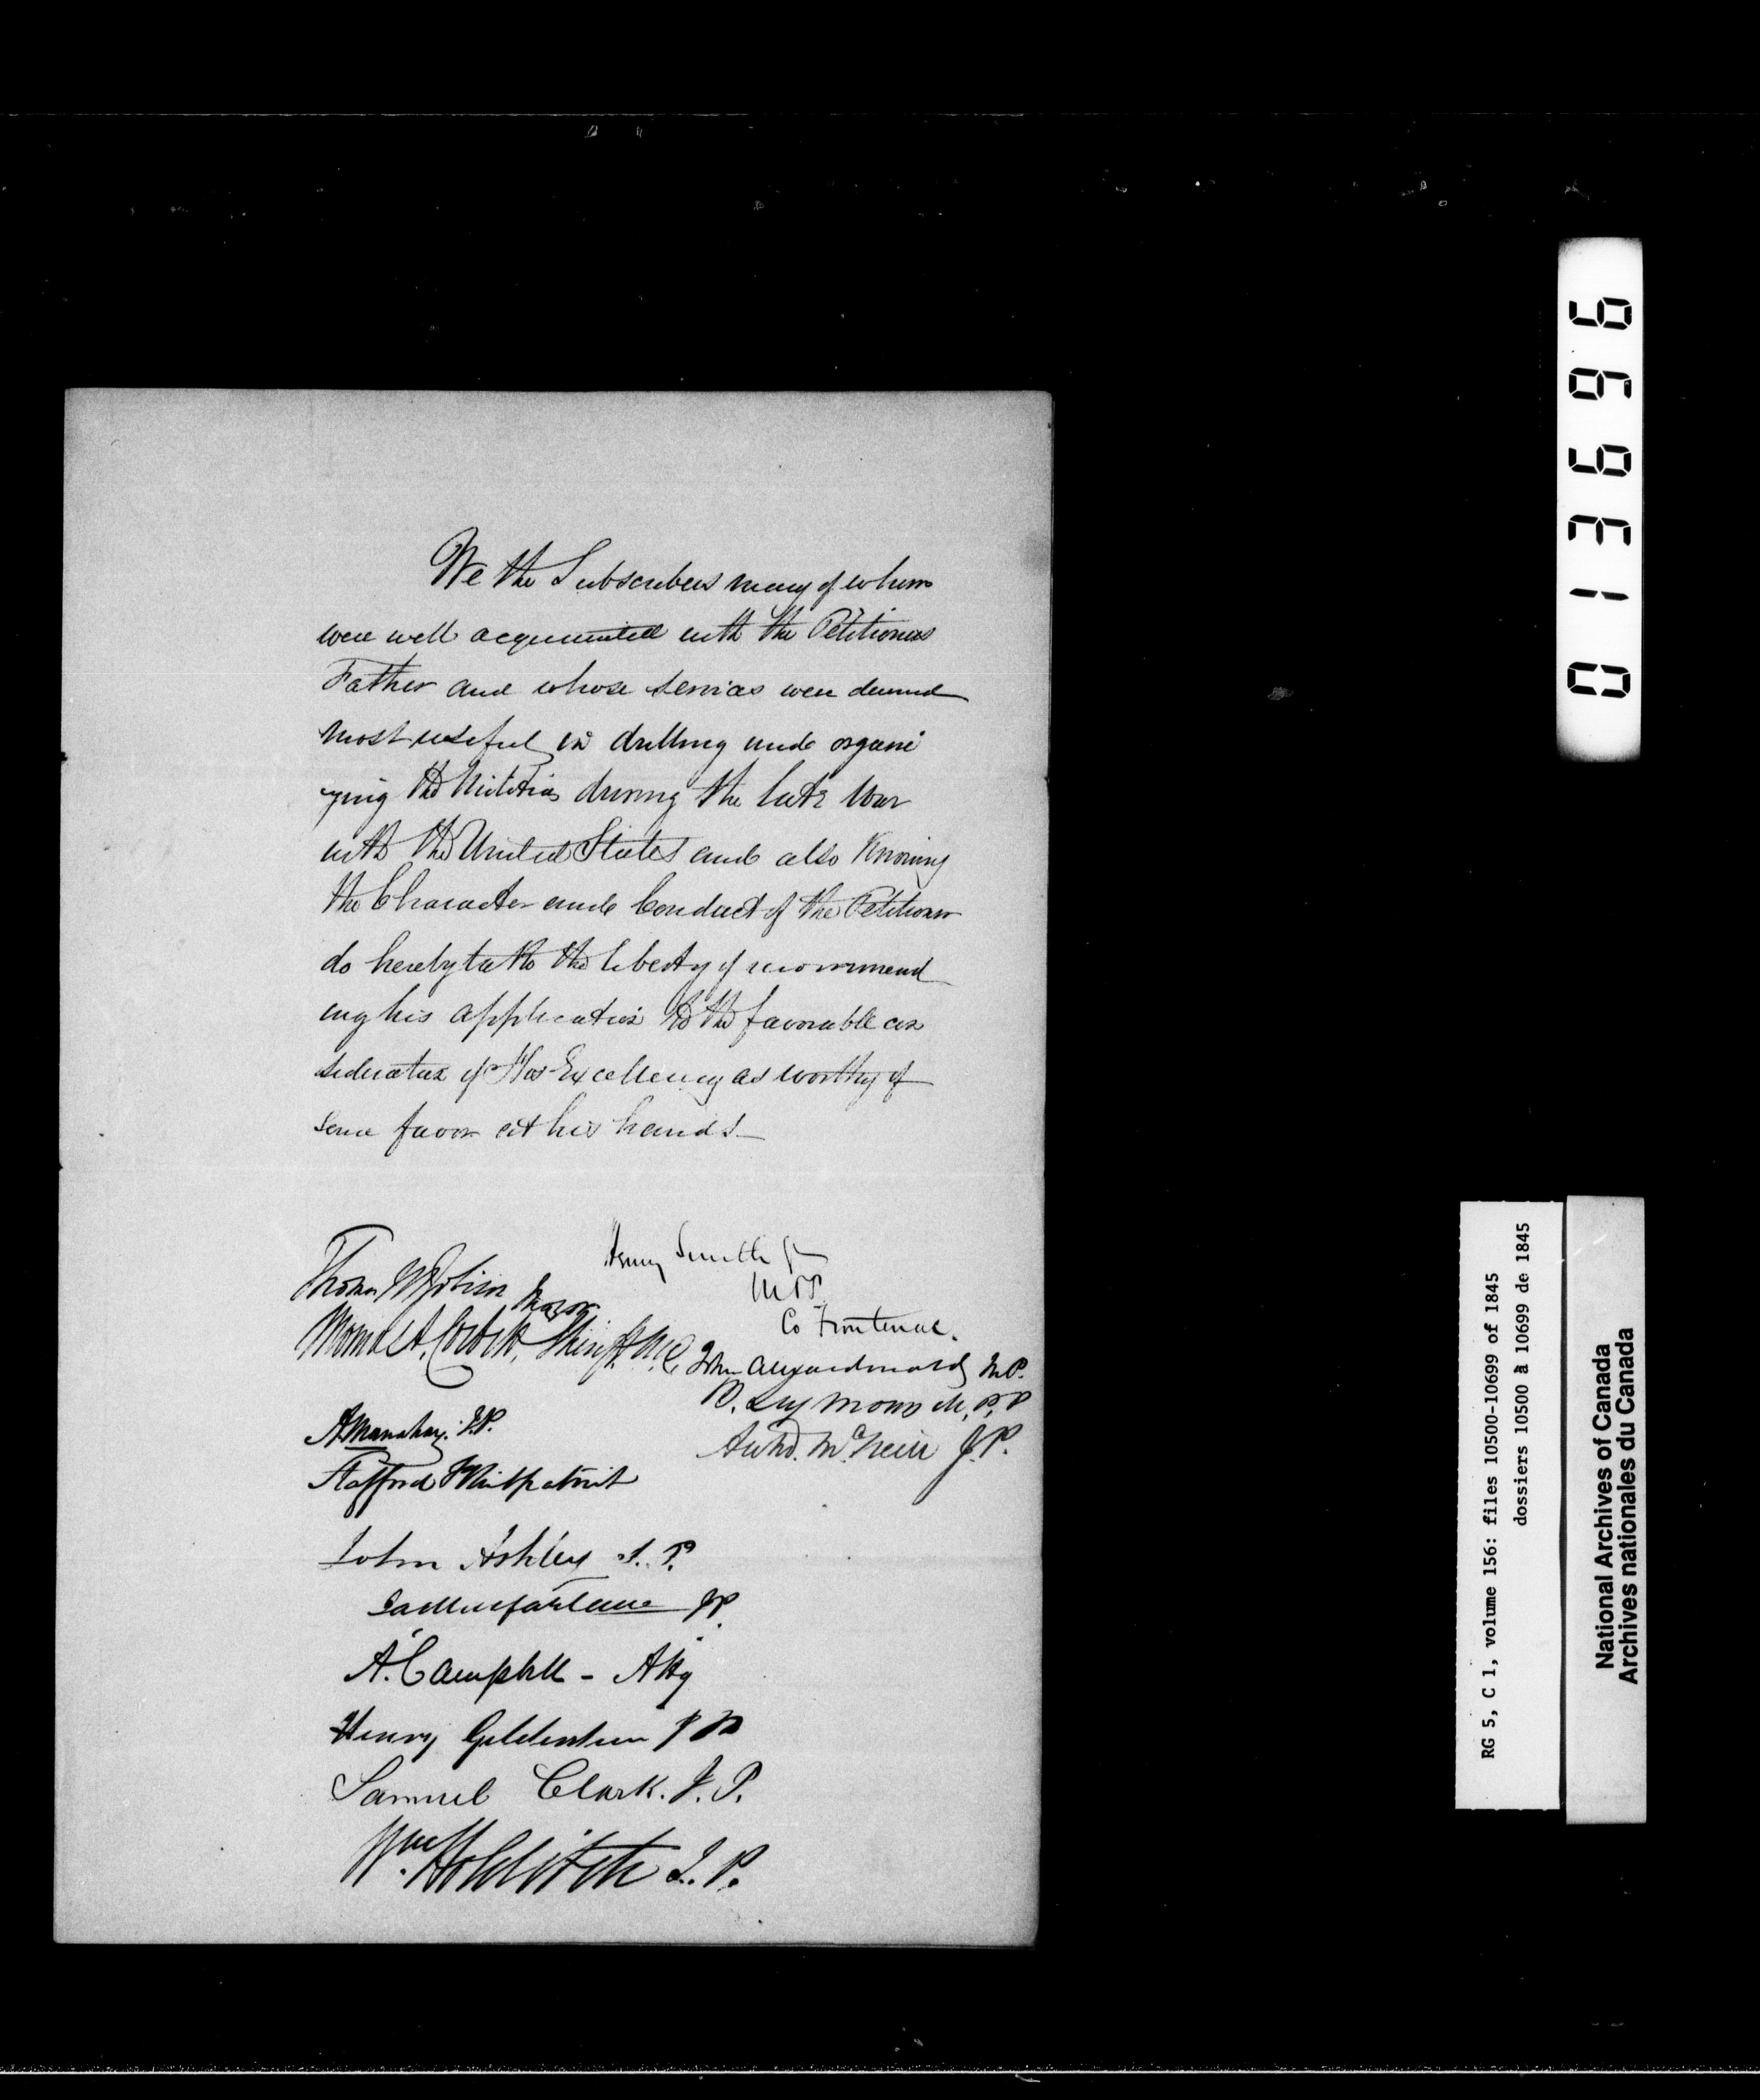 We the Subscribers many of whom
were well acquainted with the Petitioners
Father and whose services were deemed
most useful in drilling and organi
zing the Militia during the late War
with the United States and also Knowing
the Character and Conduct of the Petitioner
do hereby take the liberty of recommend
ing his application to the favorable con
sideration of His Excellency as worthy of
some favor at his hands
Henry Smith Jr
MPP
Co Frontenac.
Thomas W Robison Mayor
Thomas A. Corbett, Sheriff M.D.
John A Macdonald M.P.
B. Seymour M.P.P
A Manahan. J.P.
Archd. McNeill J.P.
Stafford Kirkpatrick
John Ashley J.P.
Macfarlane JP.
A. Campbell - Atty
Henry Gildersleeve J P
Samuel Clark. J.P.
Wm. Holditch J.P.
013696
RG 5, C 1, volume 156: files 10500-10699 of 1845
dossiers 10500 à 10699 de 1845
National Archives of Canada
Archives nationales du Canada